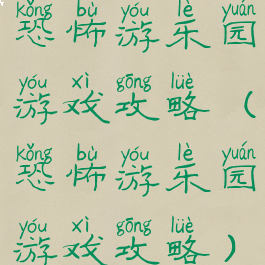 kǒng bù yóu lè yuán
恐怖游乐园
yóu xì gōng lüè
游戏攻略（
kǒng bù yóu lè yuán
恐怖游乐园
yóu xì gōng lüè
游戏攻略）